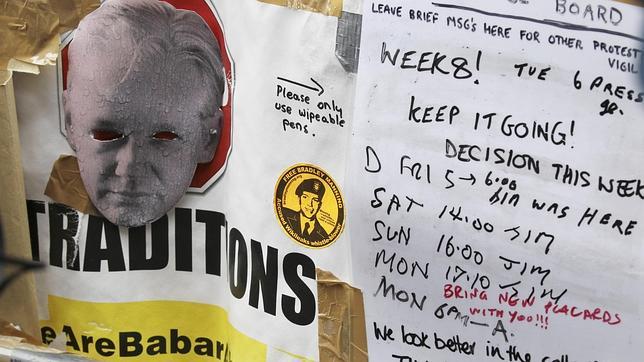 BOARD
LEAVE BRIEF MSG'S HERE FOR OTHER PROTEST
VIGIL
WEEK 8! TUE 6 PRESS
Please only
use wipeable
pens.
KEEP IT GOING!
DECISION THIS WEEK
D FRI 5 → 6.00
WAS HERE
SAT 14.00 JIM
SUN 16.00 JIM
MON 17.10 JIM
BRING NEW PLACARDS
WITH YOU!!!
MON 6PM — A.
We look better in the
FREE BRADLEY MANNING
Accused Wikileaks whistle-blower
TRADITIONS
eAreBabar